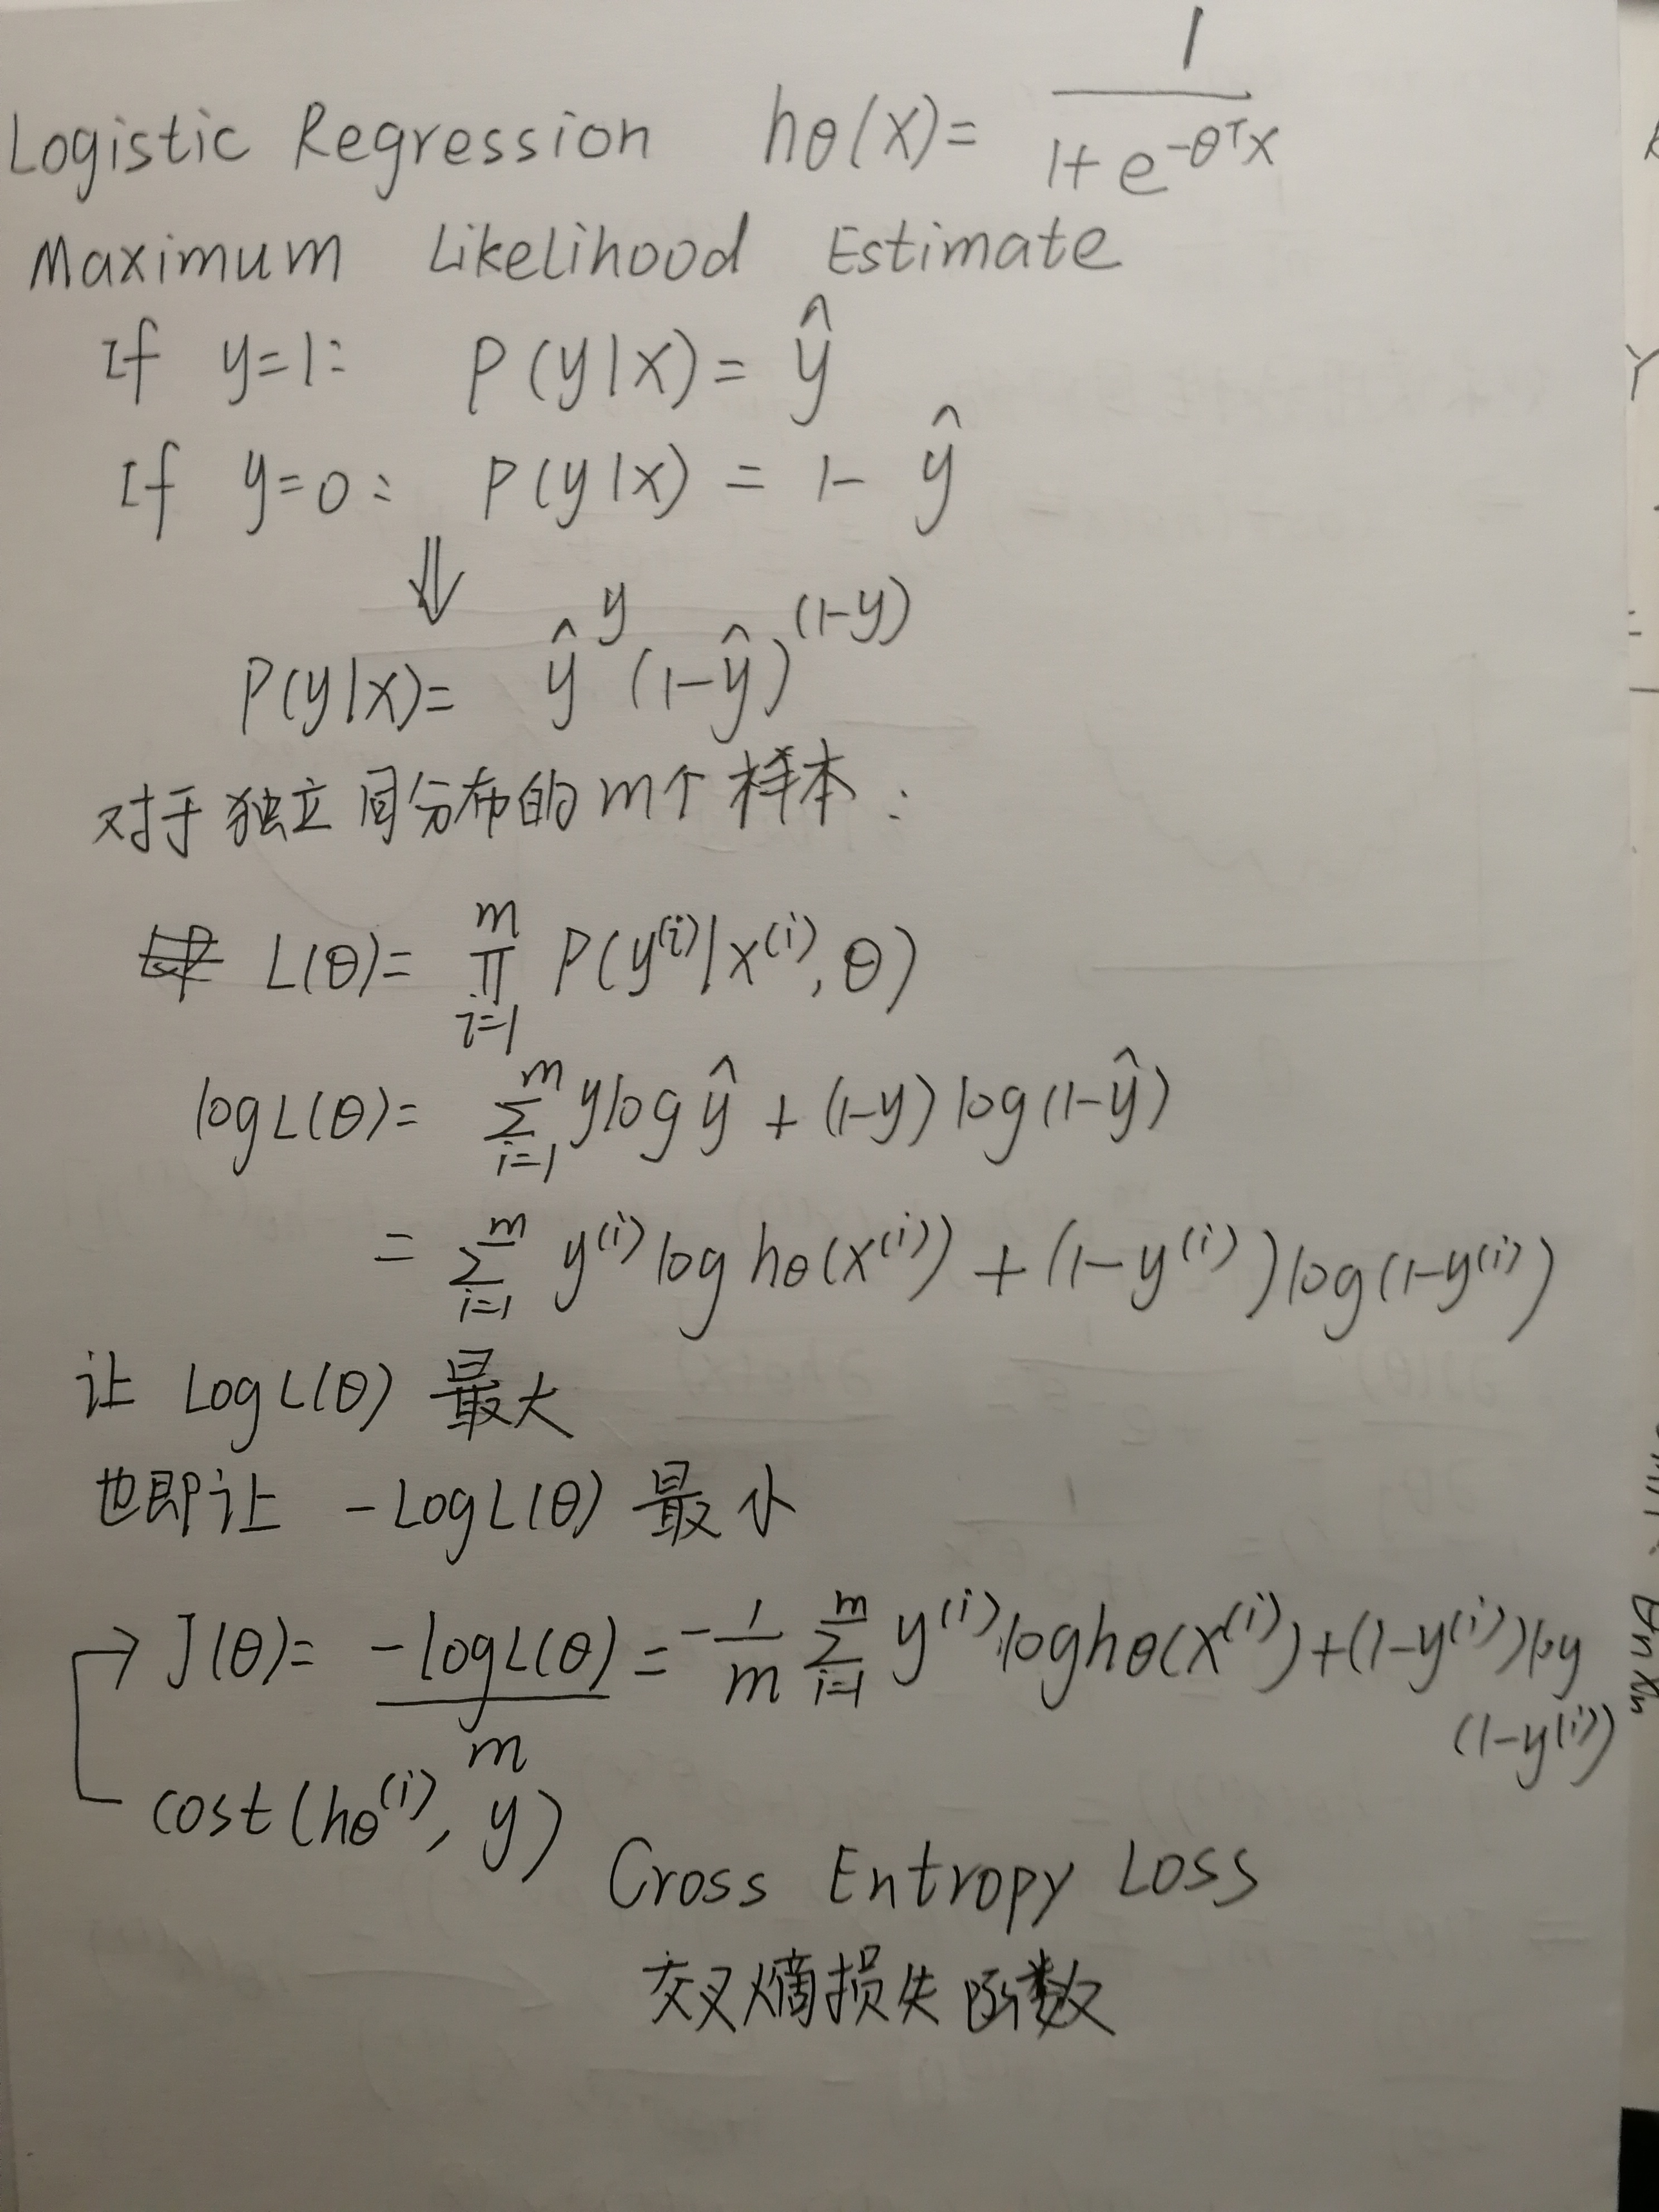 Logistic Regression hθ(x)= 1/(1+e^(-θᵀx))
Maximum Likelihood Estimate
If y=1: P(y|x)= ŷ
If y=0: P(y|x) = 1- ŷ
⇓
P(y|x)= ŷ^y (1-ŷ)^(1-y)
对于独立同分布的m个样本:
L(θ)= ∏_{i=1}^{m} P(y^(i)|x^(i), θ)
logL(θ)= ∑_{i=1}^{m} ylogŷ + (1-y) log(1-ŷ)
= ∑_{i=1}^{m} y^(i) log hθ(x^(i)) + (1-y^(i)) log(1-y^(i))
让 LogL(θ) 最大
也即让 -LogL(θ) 最小
→ J(θ)= -logL(θ)/m = -1/m ∑_{i=1}^{m} y^(i) loghθ(x^(i))+(1-y^(i))log
(1-y^(i))
cost(hθ^(i), y)
Cross Entropy Loss
交叉熵损失函数